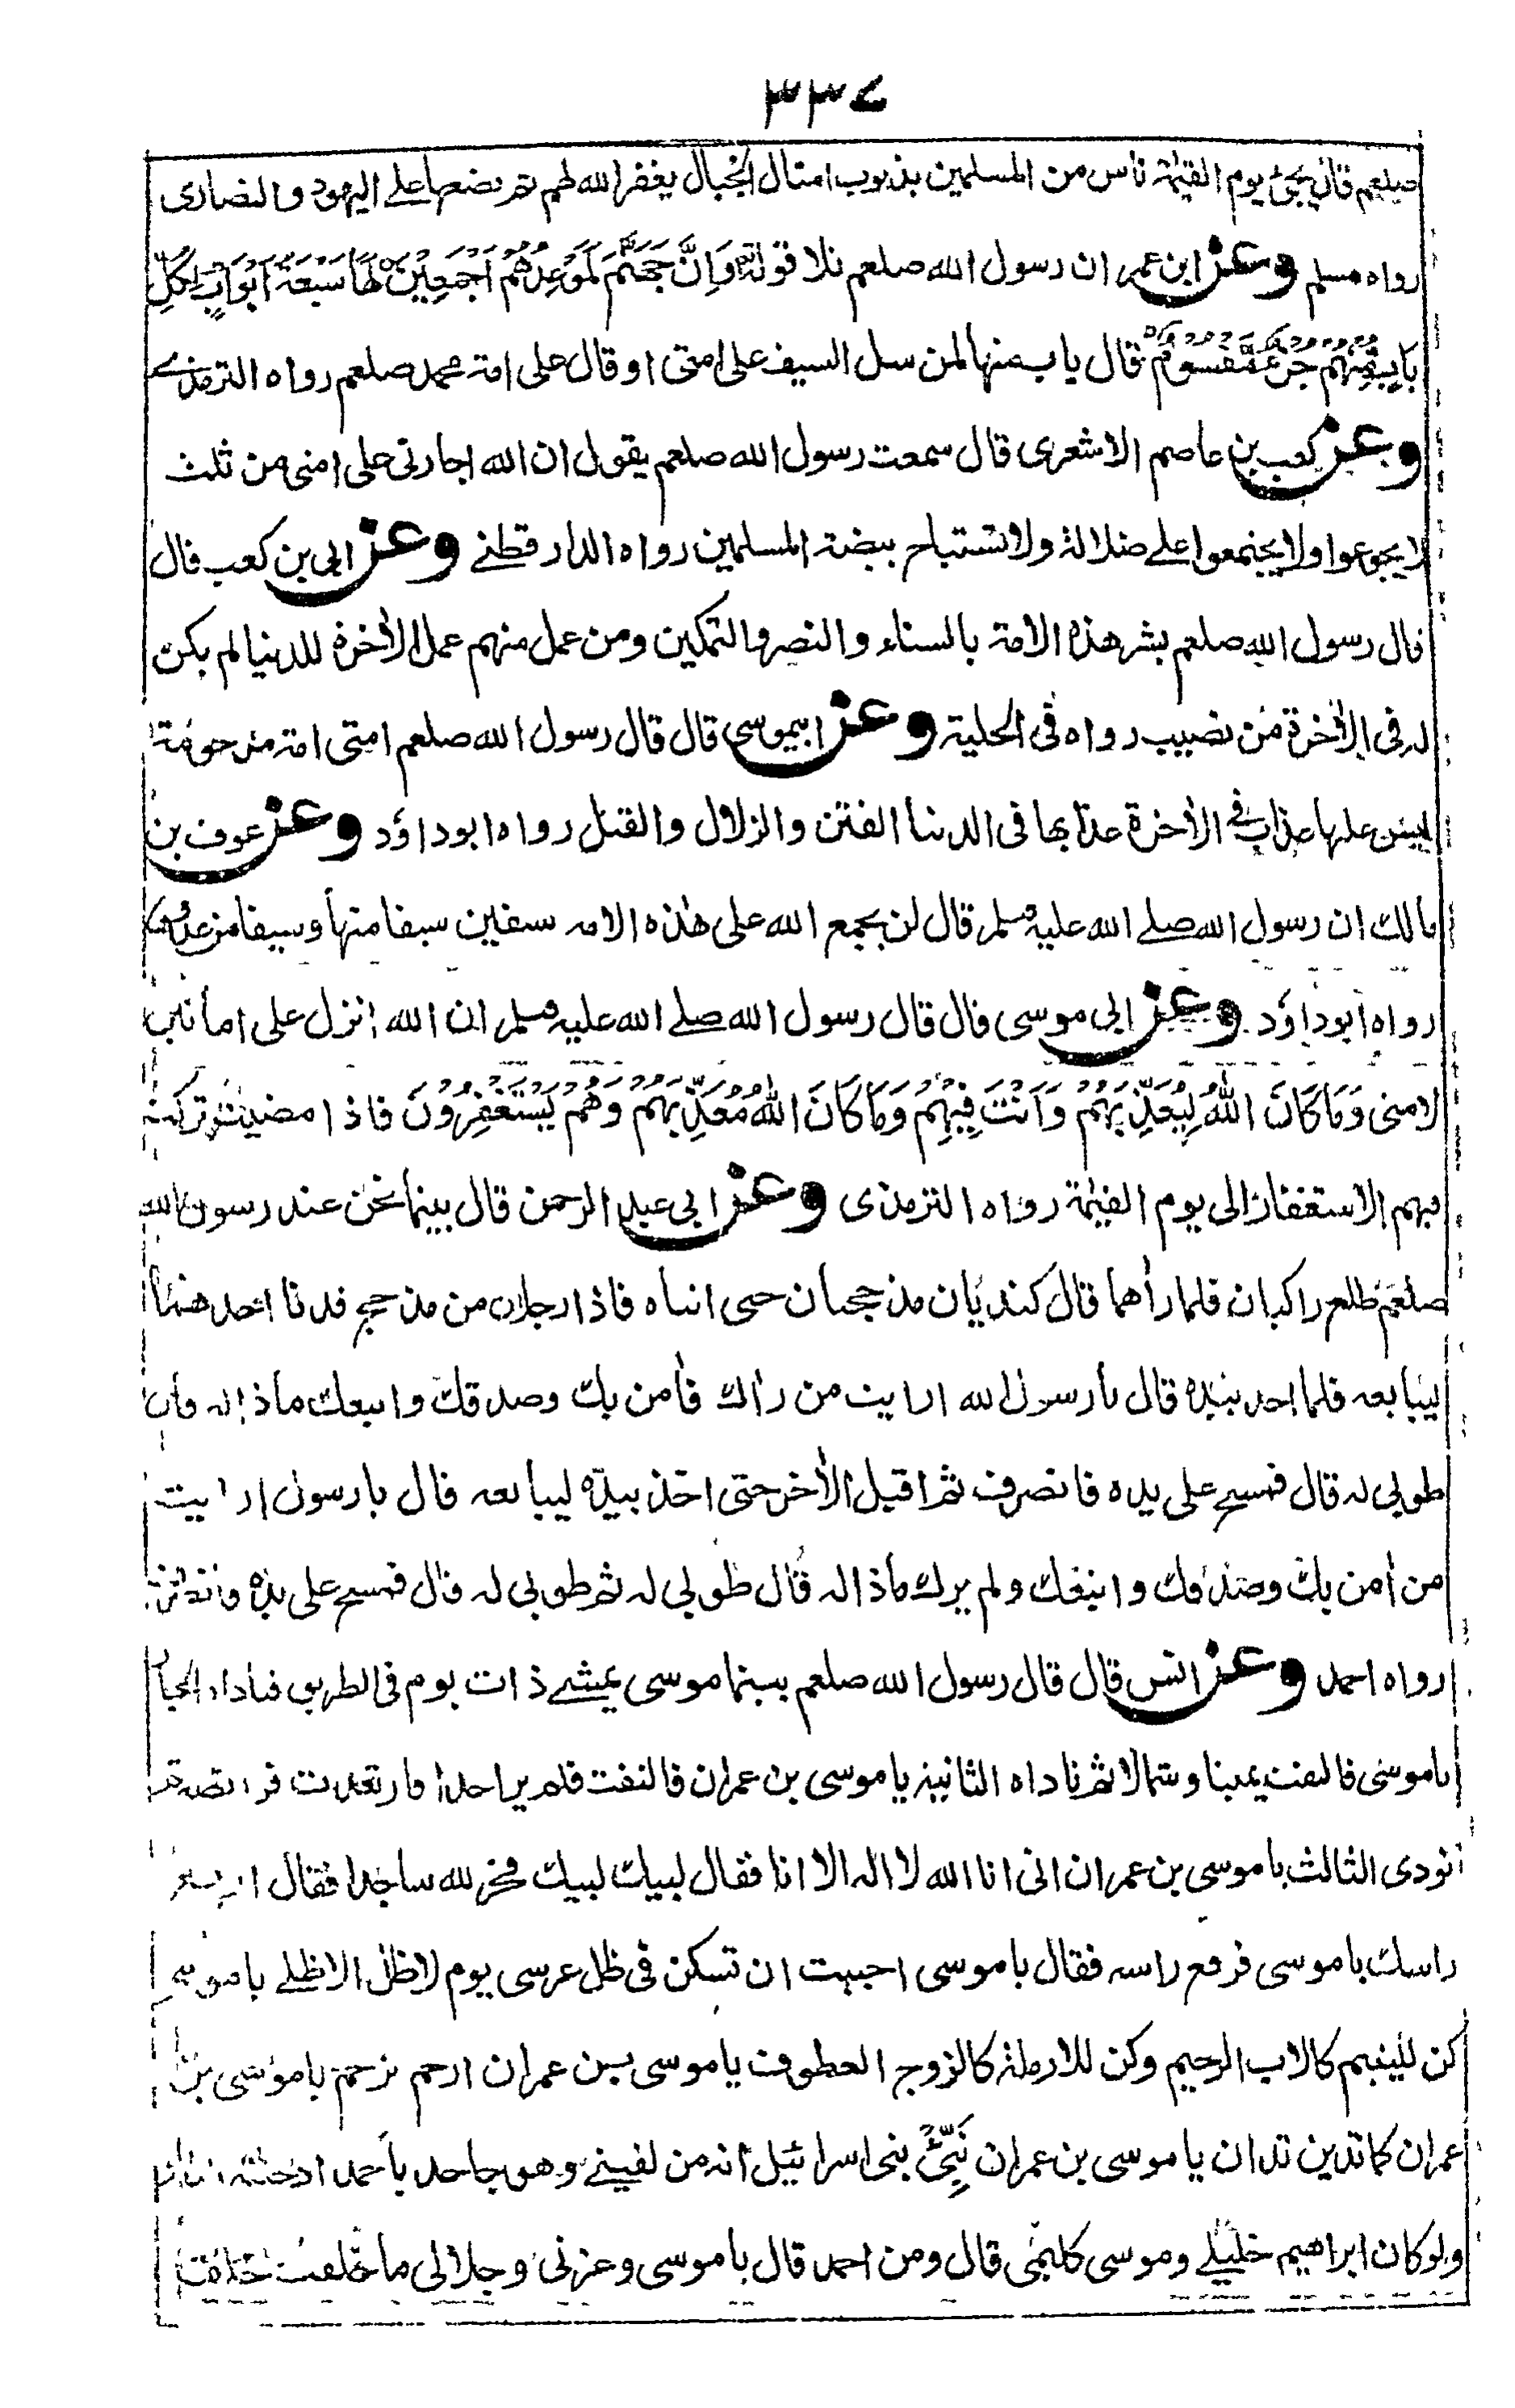 ٣٣٤
صلعم قال يجئ يوم القيٰمة ناس من المسلمين بذنوب امثال الجبال يغفر الله لهم ثم يضعها على اليهود والنصارى
رواه مسلم وعن ابن عمر ان رسول الله صلعم تلا قوله وَاِنَّ جَهَنَّمَ لَمَوْعِدُهُمْ اَجْمَعِيْنَ لَهَا سَبْعَةُ اَبْوَابٍ لِكُلِّ
بَابٍ مِّنْهُمْ جُزْءٌ مَّقْسُوْمٌ قال باب منها لمن سل السيف على امتى او قال على امة محمد صلعم رواه الترمذے
وعن كعب بن عاصم الاشعرى قال سمعت رسول الله صلعم يقول ان الله اجارنى على امتى من ثلث
لا يجوعوا ولا يجتمعوا على ضلالة ولا تستباح بيضة المسلمين رواه الدارقطنے وعن ابى بن كعب قال
قال رسول الله صلعم بشر هذه الامة بالسناء والنصر والتمكين ومن عمل منهم عمل الاٰخرة للدنيا لم يكن
له فى الاٰخرة من نصيب رواه فى الحلية وعن ابيموسى قال قال رسول الله صلعم امتى امة مرحومة
ليس عليها عذاب فے الاٰخرة عذابها فى الدنيا الفتن والزلازل والقتل رواه ابوداؤد وعن عوف بن
مالك ان رسول الله صلے الله عليه وسلم قال لن يجمع الله على هٰذه الامة سيفين سيفا منها وسيفا من عدوها
رواه ابوداؤد وعن ابى موسى قال قال رسول الله صلے الله عليه وسلم ان الله انزل على امانين
لامتى وَمَا كَانَ اللّٰهُ لِيُعَذِّبَهُمْ وَاَنْتَ فِيْهِمْ وَمَا كَانَ اللّٰهُ مُعَذِّبَهُمْ وَهُمْ يَسْتَغْفِرُوْنَ فاذا مضيت تركت
فيهم الاستغفار الى يوم القيٰمة رواه الترمذى وعن ابى عبد الرحمن قال بينما نحن عند رسول الله
صلعم طلع راكبان فلما راٰهما قال كنديان مذحجيان حتى اتياه فاذا رجلان من مذحج فدنا احدهما
ليبايعه فلما اخذ بيده قال يا رسول الله ارايت من راٰك فاٰمن بك وصدقك واتبعك ماذا له قال
طوبى له قال فمسح على يده فانصرف ثم اقبل الاٰخر حتى اخذ بيده ليبايعه قال يا رسول ارايت
من اٰمن بك وصدقك واتبعك ولم يرك ماذا له قال طوبى له ثم طوبى له قال فمسح على يده وانصرف
رواه احمد وعن انس قال قال رسول الله صلعم بينما موسى يمشے ذات يوم فى الطريق فناداه الجبار
يا موسى فالتفت يمينا وشمالا ثم ناداه الثانية يا موسى بن عمران فالتفت فلم ير احدا فارتعدت فرائصه ثم
نودى الثالث يا موسى بن عمران انى انا الله لا اله الا انا فقال لبيك لبيك فخر لله ساجدا فقال
راسك يا موسى فرفع راسه فقال يا موسى احببت ان تسكن فى ظل عرشى يوم لا ظل الا ظلے يا موسى
كن لليتيم كالاب الرحيم وكن للارملة كالزوج العطوف يا موسى بن عمران ارحم ترحم يا موسى بن
عمران كما تدين تدان يا موسى بن عمران نَبِّئْ بنى اسرائيل انه من لقينے وهو جاحد باحمد ادخلته النار
ولو كان ابراهيم خليلے وموسى كليمى قال ومن احمد قال يا موسى وعزتى وجلالى ما خلقت خلقا